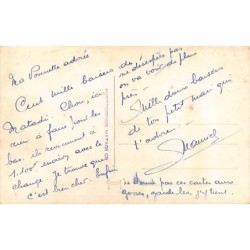 Ma Poupette adorée
Cent mille baisers
de Matadi. Chou, ici
rien à faire pour les
bas. ils reviennent à
1.100 environ avec le
change. Je trouve que
c'est bien cher. Enfin
ne désespère pas
on va voir de plus
près -
Mille doux baisers
de ton petit mari qui
t'adore.
Maurice
ne donne pas ces cartes aux
gosses, garde-les j'y tiens.